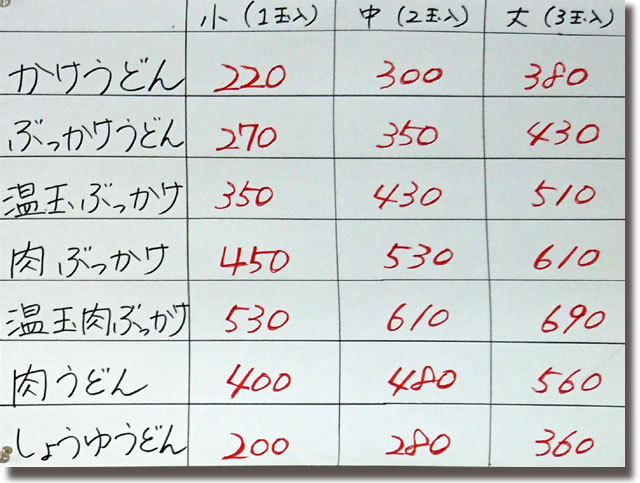 小（1玉入） 中（2玉入） 大（3玉入）
かけうどん 220 300 380
ぶっかけうどん 270 350 430
温玉ぶっかけ 350 430 510
肉ぶっかけ 450 530 610
温玉肉ぶっかけ 530 610 690
肉うどん 400 480 560
しょうゆうどん 200 280 360